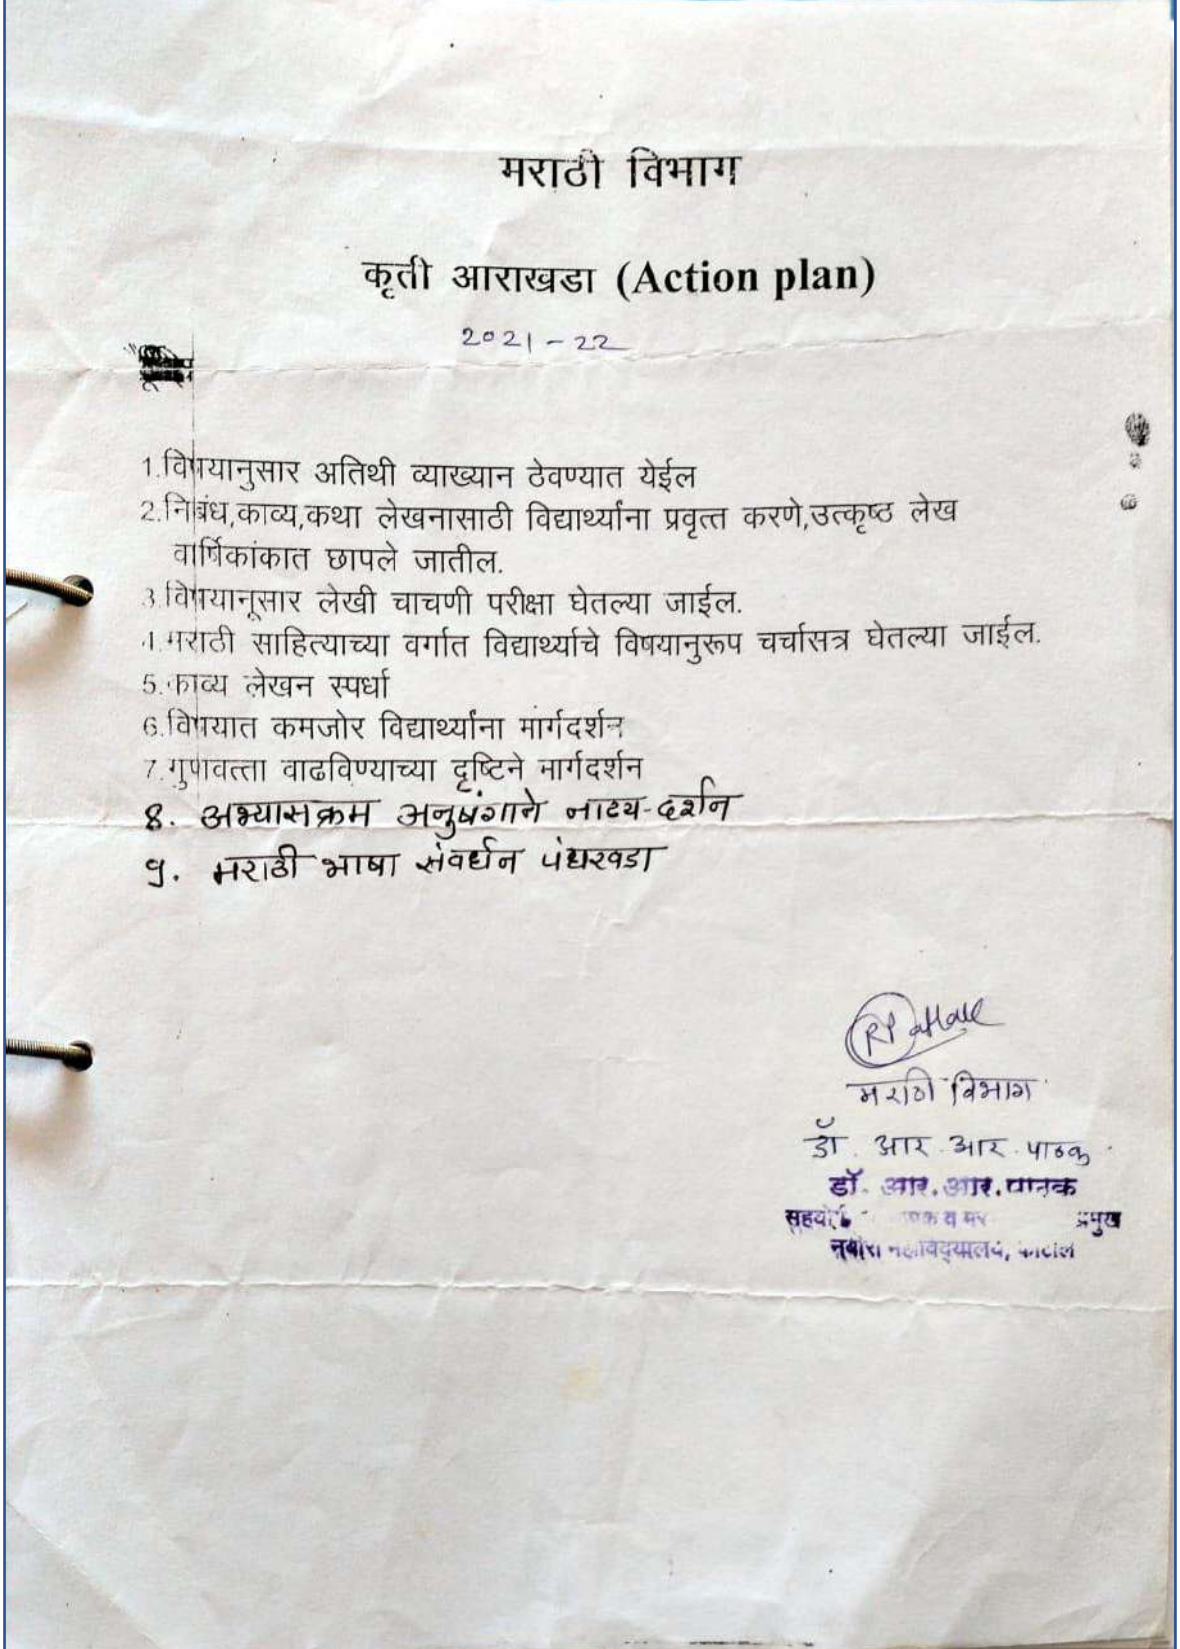 मराठी विभाग
कृती आराखडा (Action plan)
2021-22
1.विषयानुसार अतिथी व्याख्यान ठेवण्यात येईल
2.निबंध,काव्य,कथा लेखनासाठी विद्यार्थ्यांना प्रवृत्त करणे,उत्कृष्ठ लेख
वार्षिकांकात छापले जातील.
3.विषयानूसार लेखी चाचणी परीक्षा घेतल्या जाईल.
4.मराठी साहित्याच्या वर्गात विद्यार्थ्याचे विषयानुरूप चर्चासत्र घेतल्या जाईल.
5.काव्य लेखन स्पर्धा
6.विषयात कमजोर विद्यार्थ्यांना मार्गदर्शन
7.गुणवत्ता वाढविण्याच्या दृष्टिने मार्गदर्शन
8. अभ्यासक्रम अनुषंगाने नाट्य-दर्शन
9. मराठी भाषा संवर्धन पंधरवडा
मराठी विभाग
डॉ. आर. आर. पाठक
डॉ. आर. आर. पाठक
प्रमुख
महाविद्यालय, काटोल